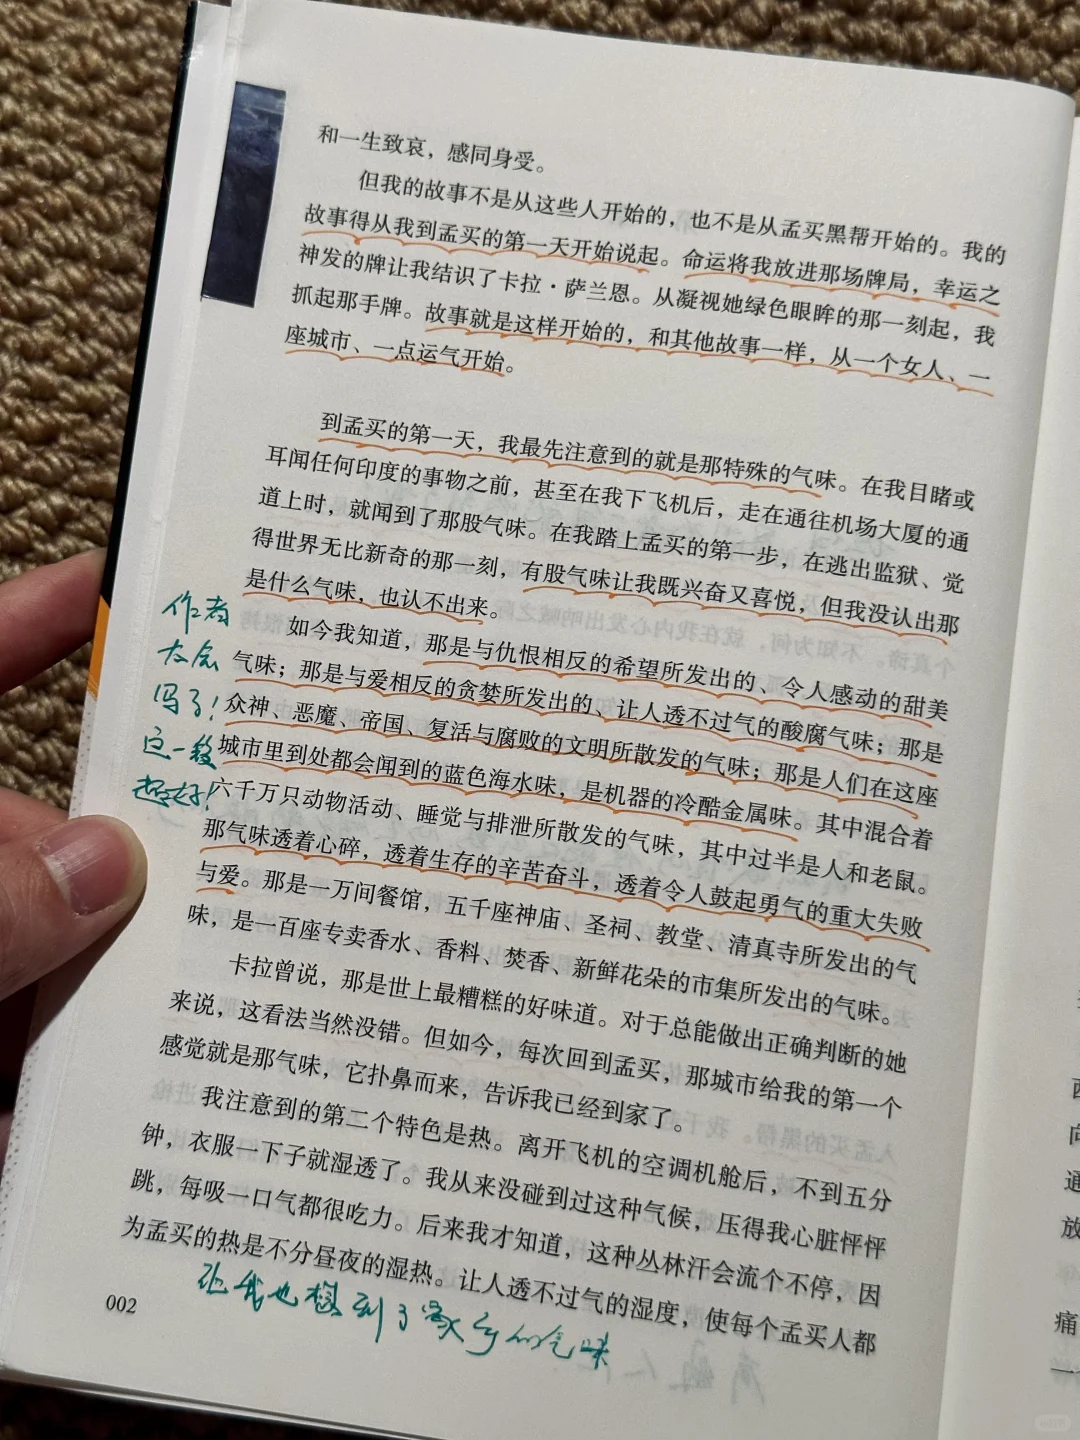 和一生致哀，感同身受。
但我的故事不是从这些人开始的，也不是从孟买黑帮开始的。我的
故事得从我到孟买的第一天开始说起。命运将我放进那场牌局，幸运之
神发的牌让我结识了卡拉·萨兰恩。从凝视她绿色眼眸的那一刻起，我
抓起那手牌。故事就是这样开始的，和其他故事一样，从一个女人、一
座城市、一点运气开始。
到孟买的第一天，我最先注意到的就是那特殊的气味。在我目睹或
耳闻任何印度的事物之前，甚至在我下飞机后，走在通往机场大厦的通
道上时，就闻到了那股气味。在我踏上孟买的第一步，在逃出监狱、觉
得世界无比新奇的那一刻，有股气味让我既兴奋又喜悦，但我没认出那
是什么气味，也认不出来。
如今我知道，那是与仇恨相反的希望所发出的、令人感动的甜美
气味；那是与爱相反的贪婪所发出的、让人透不过气的酸腐气味；那是
众神、恶魔、帝国、复活与腐败的文明所散发的气味；那是人们在这座
城市里到处都会闻到的蓝色海水味，是机器的冷酷金属味。其中混合着
六千万只动物活动、睡觉与排泄所散发的气味，其中过半是人和老鼠。
那气味透着心碎，透着生存的辛苦奋斗，透着令人鼓起勇气的重大失败
与爱。那是一万间餐馆，五千座神庙、圣祠、教堂、清真寺所发出的气
味，是一百座专卖香水、香料、焚香、新鲜花朵的市集所发出的气味。
卡拉曾说，那是世上最糟糕的好味道。对于总能做出正确判断的她
来说，这看法当然没错。但如今，每次回到孟买，那城市给我的第一个
感觉就是那气味，它扑鼻而来，告诉我已经到家了。
我注意到的第二个特色是热。离开飞机的空调机舱后，不到五分
钟，衣服一下子就湿透了。我从来没碰到过这种气候，压得我心脏怦怦
跳，每吸一口气都很吃力。后来我才知道，这种丛林汗会流个不停，因
为孟买的热是不分昼夜的湿热。让人透不过气的湿度，使每个孟买人都
002
作者
太会
写了！
这一段
超好！
让我也想到了家乡的气味